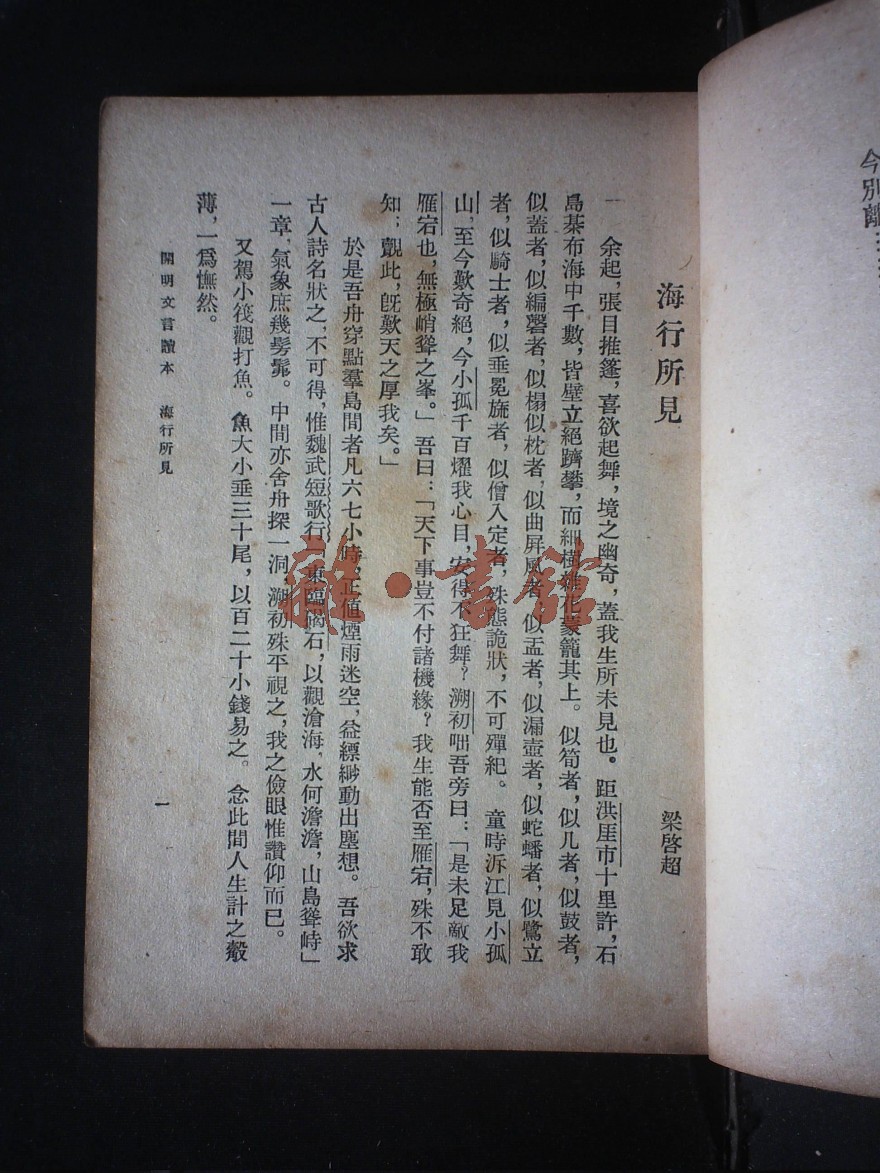 今別離……
海行所見
梁啓超
一 余起，張目推篷，喜欲起舞，境之幽奇，蓋我生所未見也。距洪厓市十里許，石
島棊布海中千數，皆壁立絕躋攀，而細樹雜花蒙籠其上。似筍者，似几者，似鼓者，
似蓋者，似編磬者，似榻似枕者，似曲屏風者，似盂者，似漏壺者，似蛇蟠者，似鷺立
者，似騎士者，似垂冕旒者，似僧入定者，殊態詭狀，不可殫紀。童時泝江見小孤
山，至今歎奇絕，今小孤千百燿我心目，安得不狂舞？溯初咄吾旁曰：「是未足敵我
雁宕也，無極峭聳之峯。」吾曰：「天下事豈不付諸機緣？我生能否至雁宕，殊不敢
知；覯此，旣歎天之厚我矣。」
於是吾舟穿點羣島間者凡六七小時，正值煙雨迷空，益縹緲動出塵想。吾欲求
古人詩名狀之，不可得，惟魏武短歌行「東臨碣石，以觀滄海，水何澹澹，山島聳峙」
一章，氣象庶幾髣髴。中間亦舍舟探一洞，溯初殊平視之，我之儉眼惟讚仰而已。
又駕小筏觀打魚。魚大小垂三十尾，以百二十小錢易之。念此間人生計之觳
薄，一爲憮然。
開明文言讀本 海行所見
一
龍·書館